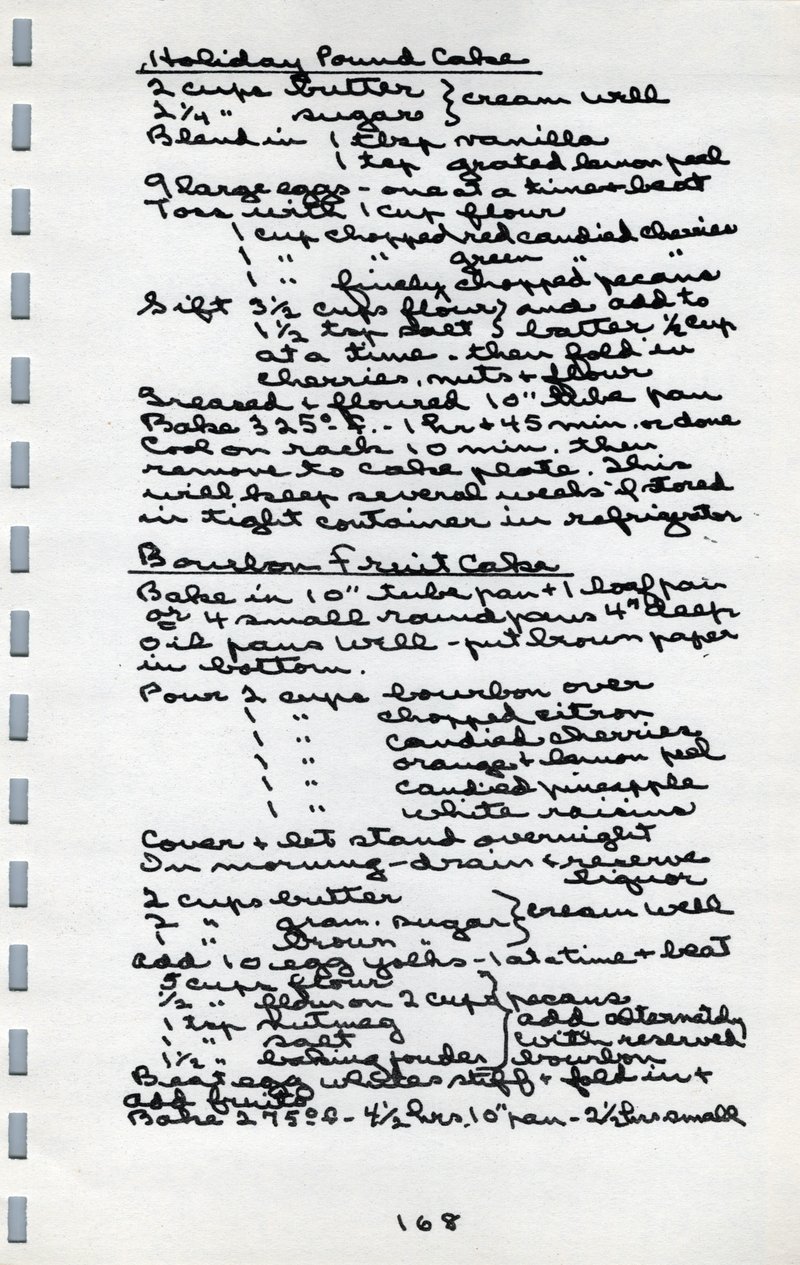 Holiday Pound Cake
2 cups butter } cream well
2 1/4 " sugar
Blend in 1 tbsp vanilla
1 tsp grated lemon peel
9 large eggs - one at a time + beat
Toss with 1 cup flour
1 cup chopped red candied cherries
1 " " green " "
1 " finely chopped pecans
Sift 3 1/2 cups flour } and add to
1 1/2 tsp salt } batter 1/2 cup
at a time. then fold in
cherries, nuts + flour
Greased + floured 10" tube pan
Bake 325° f. - 1 hr + 45 min. or done
Cool on rack 10 min. then
remove to cake plate. This
will keep several weeks if stored
in tight container in refrigerator
Bourbon Fruit Cake
Bake in 10" tube pan + 1 loaf pan
or 4 small round pans 4" deep
Oil pans well - put brown paper
in bottom.
Pour 2 cups bourbon over
1 " chopped citron
1 " candied cherries
1 " orange + lemon peel
1 " candied pineapple
1 " white raisins
Cover + let stand overnight
In morning - drain + reserve
liquor
2 cups butter } cream well
2 " gran. sugar
1 " brown "
add 10 egg yolks - 1 at a time + beat
5 cups flour
1/2 " flour on 2 cups pecans
1 tsp nutmeg } add alternately
1 " salt with reserved
1 1/2 " baking powder bourbon
Beat egg whites stiff + fold in +
add fruits
Bake 275° f - 4 1/2 hrs. 10" pan - 2 1/2 hrs small
168